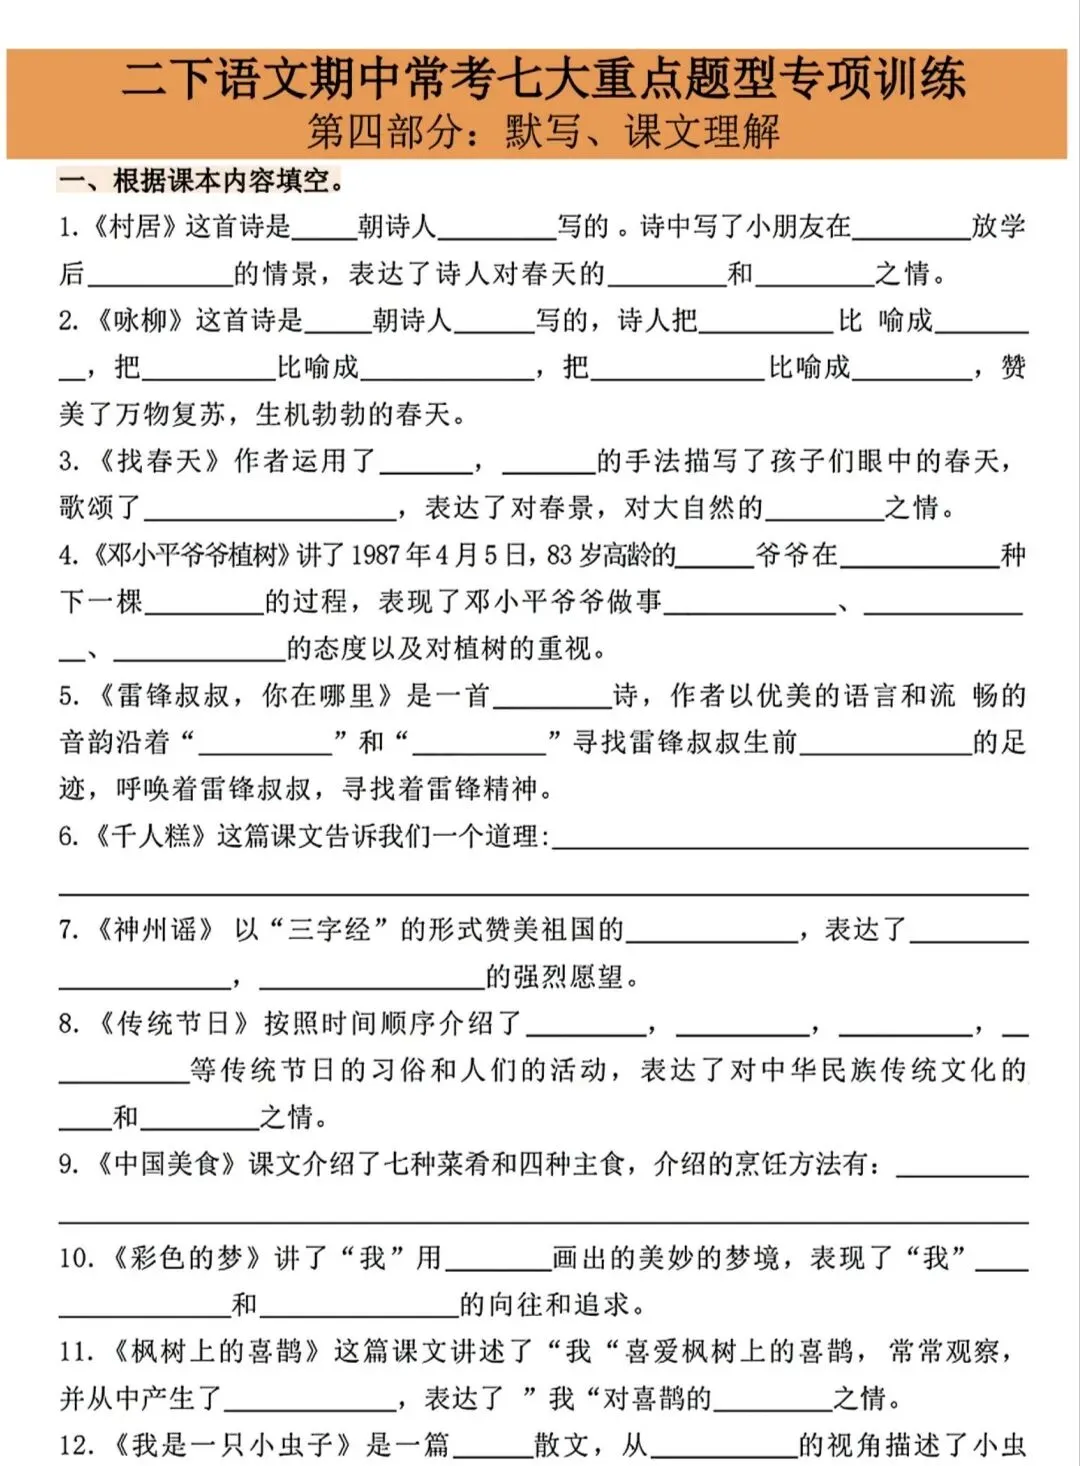 二下语文期中常考七大重点题型专项训练
第四部分：默写、课文理解
一、根据课本内容填空。
1.《村居》这首诗是_____朝诗人_________写的。诗中写了小朋友在_________放学
后___________的情景，表达了诗人对春天的_________和_________之情。
2.《咏柳》这首诗是_____朝诗人______写的，诗人把__________比 喻成_______
__，把__________比喻成_____________，把_____________比喻成_________，赞
美了万物复苏，生机勃勃的春天。
3.《找春天》作者运用了_______，_______的手法描写了孩子们眼中的春天，
歌颂了___________________，表达了对春景，对大自然的_________之情。
4.《邓小平爷爷植树》讲了1987年4月5日，83岁高龄的______爷爷在____________种
下一棵_________的过程，表现了邓小平爷爷做事_____________、____________
__、_____________的态度以及对植树的重视。
5.《雷锋叔叔，你在哪里》是一首_________诗，作者以优美的语言和流 畅的
音韵沿着“__________”和“__________”寻找雷锋叔叔生前_____________的足
迹，呼唤着雷锋叔叔，寻找着雷锋精神。
6.《千人糕》这篇课文告诉我们一个道理:____________________________________
_________________________________________________________________________
7.《神州谣》 以“三字经”的形式赞美祖国的_____________，表达了_________
_____________，_________________的强烈愿望。
8.《传统节日》按照时间顺序介绍了_________，__________，__________，__
__________等传统节日的习俗和人们的活动，表达了对中华民族传统文化的
____和_________之情。
9.《中国美食》课文介绍了七种菜肴和四种主食，介绍的烹饪方法有：__________
_________________________________________________________________________
10.《彩色的梦》讲了“我”用________画出的美妙的梦境，表现了“我”____
_____________和_______________的向往和追求。
11.《枫树上的喜鹊》这篇课文讲述了“我“喜爱枫树上的喜鹊，常常观察，
并从中产生了_____________，表达了 ”我“对喜鹊的_________之情。
12.《我是一只小虫子》是一篇______散文，从___________的视角描述了小虫